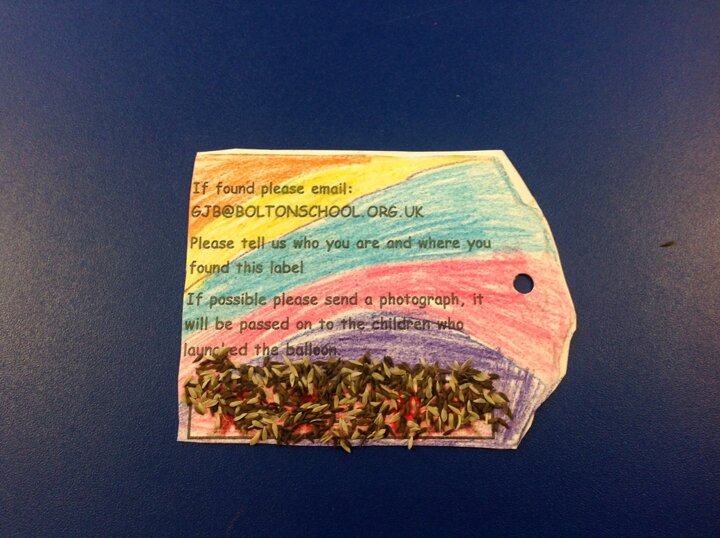 If found please email:
GJB@BOLTONSCHOOL.ORG.UK
Please tell us who you are and where you
found this label
If possible please send a photograph, it
will be passed on to the children who
launched the balloon.